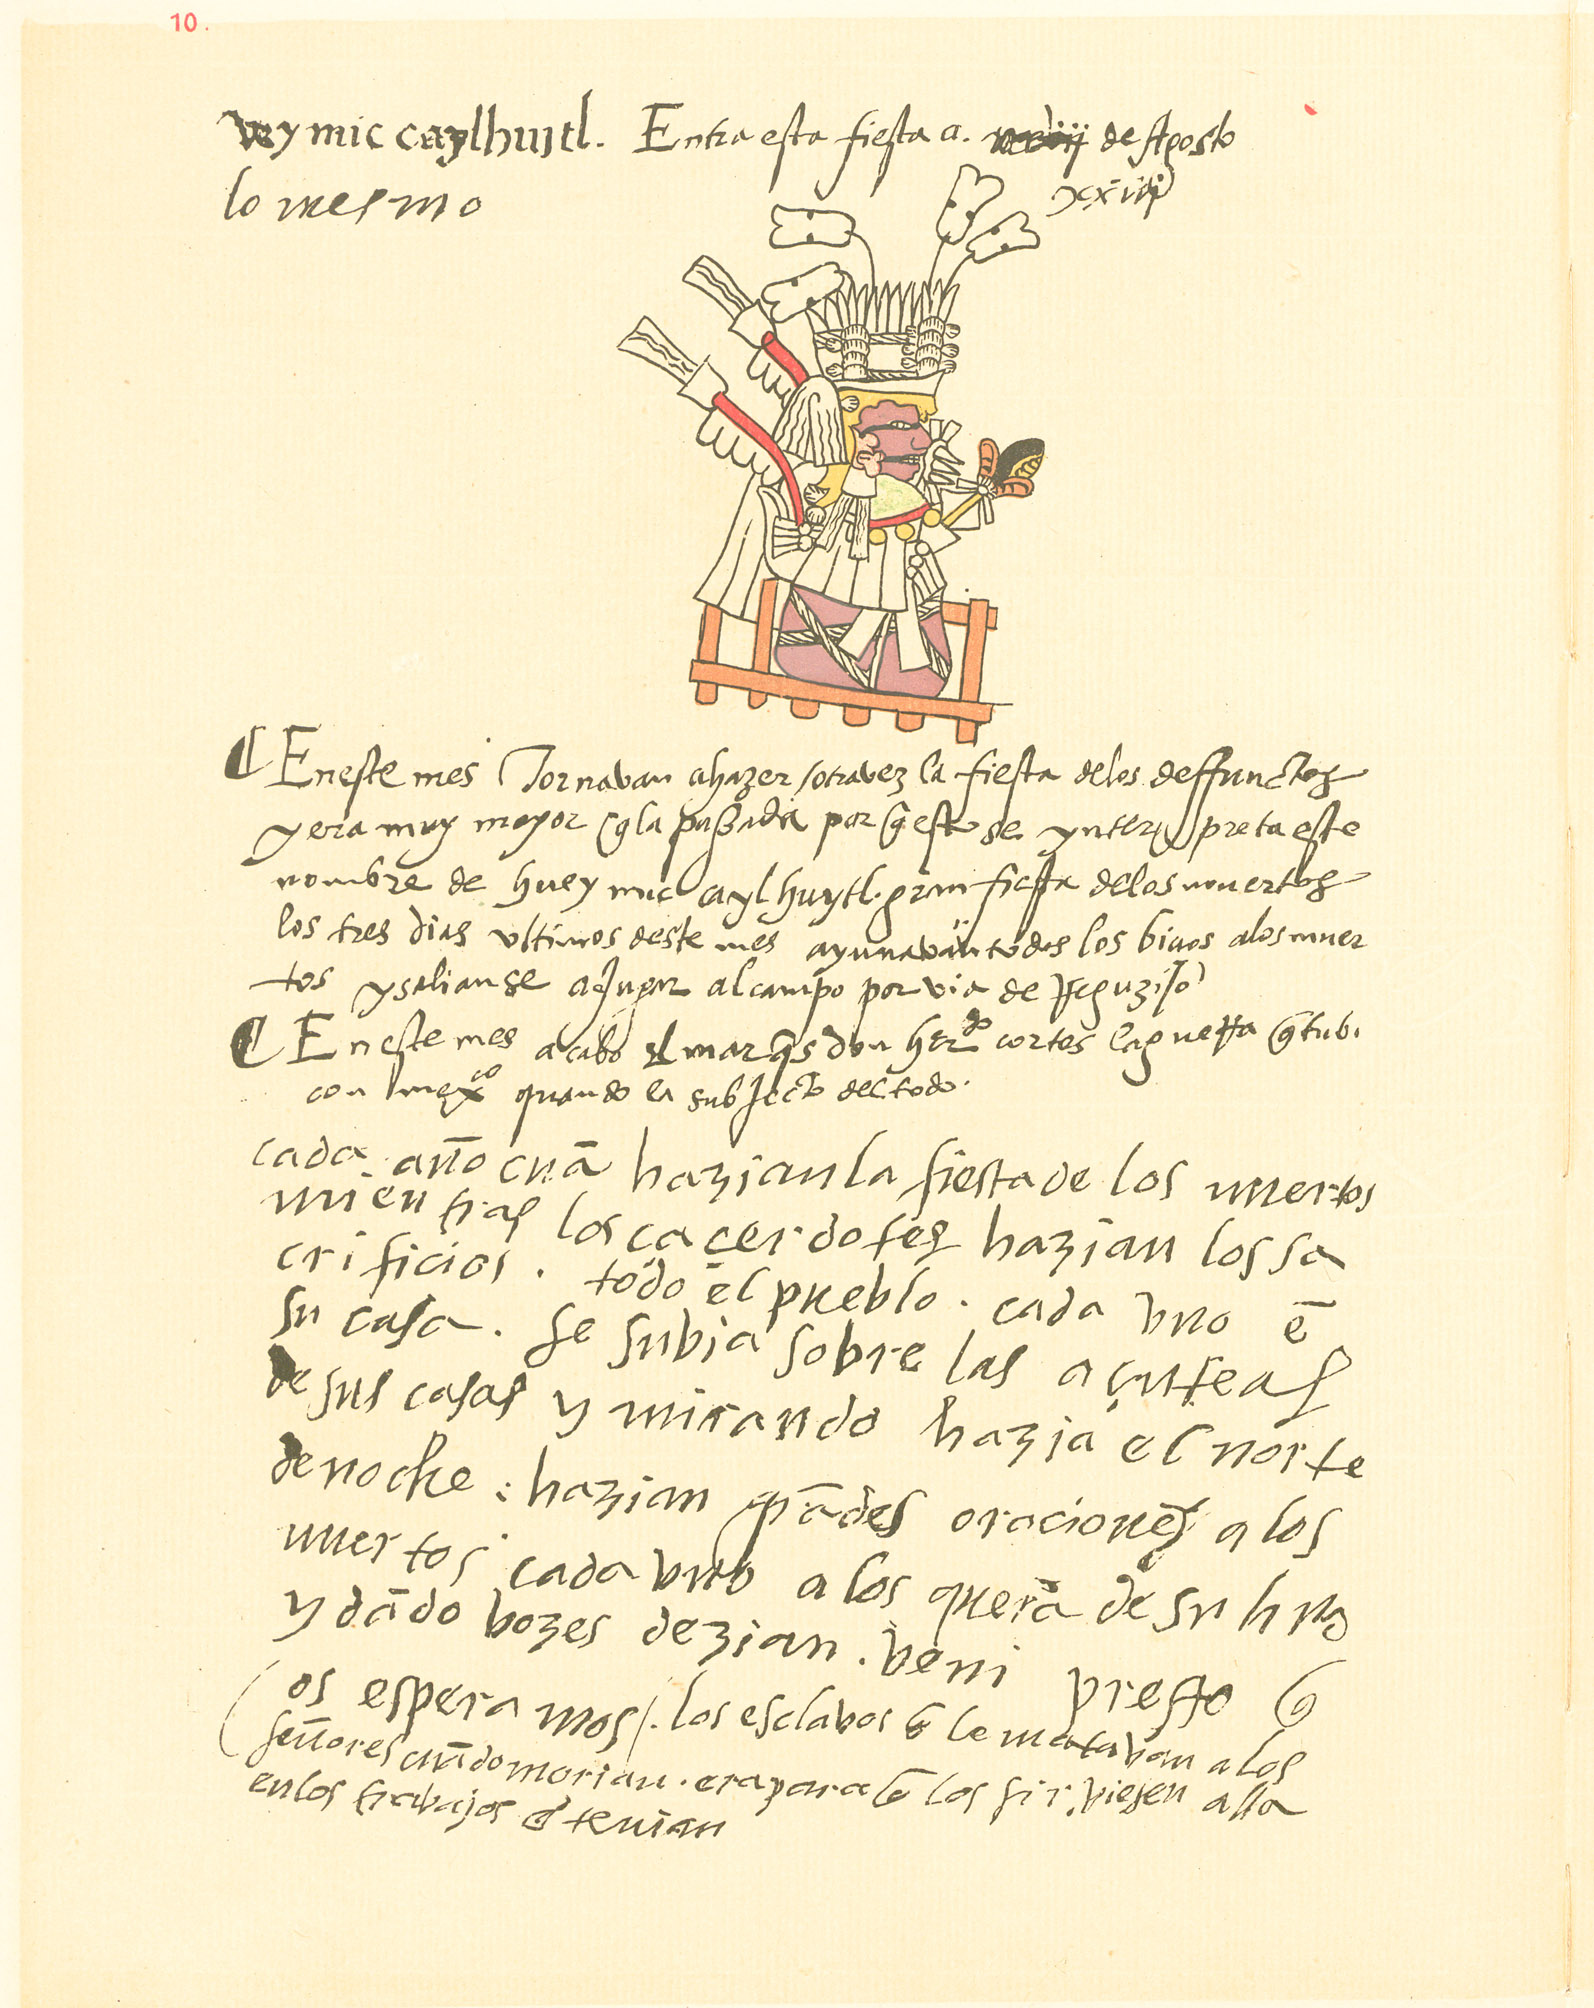 10.
veymiccaylhuitl. Entra esta fiesta a. de Agosto
lo mesmo
xxiiij
En este mes Tornavan ahazer / otravez la fiesta delos deffunctos
yera muy mayor q̃la passada por q̃esto se ynterpreta este
nombre de huey miccaylhuytl. gran fiesta delos muertos
los tres dias vltimos deste mes ayunavan todos los bivos alos muer
tos ysalianse ajugar alcampo por via de
En este mes acabo el marq̃s don her.do cortes laguerra q̃ tubi
con mexco quando la subjecto deltodo.
cada. año cuã hazian la fiesta de los muertos
mientras los cacerdotes hazian los sa
crificios. todo el pueblo. cada vno ẽ
su casa. se subia sobre las açuteas
de sus casas y mirando hazia el norte
de noche: hazian grãdes oraciones a los
muertos cada vno a los que erã de su
y dãdo bozes dezian. veni presto q̃
os esperamos /. los esclabos q̃ le matavan a los
señores cuãdo morian. era para q̃ los sirviesen alla
en los trabajos q̃ tenian